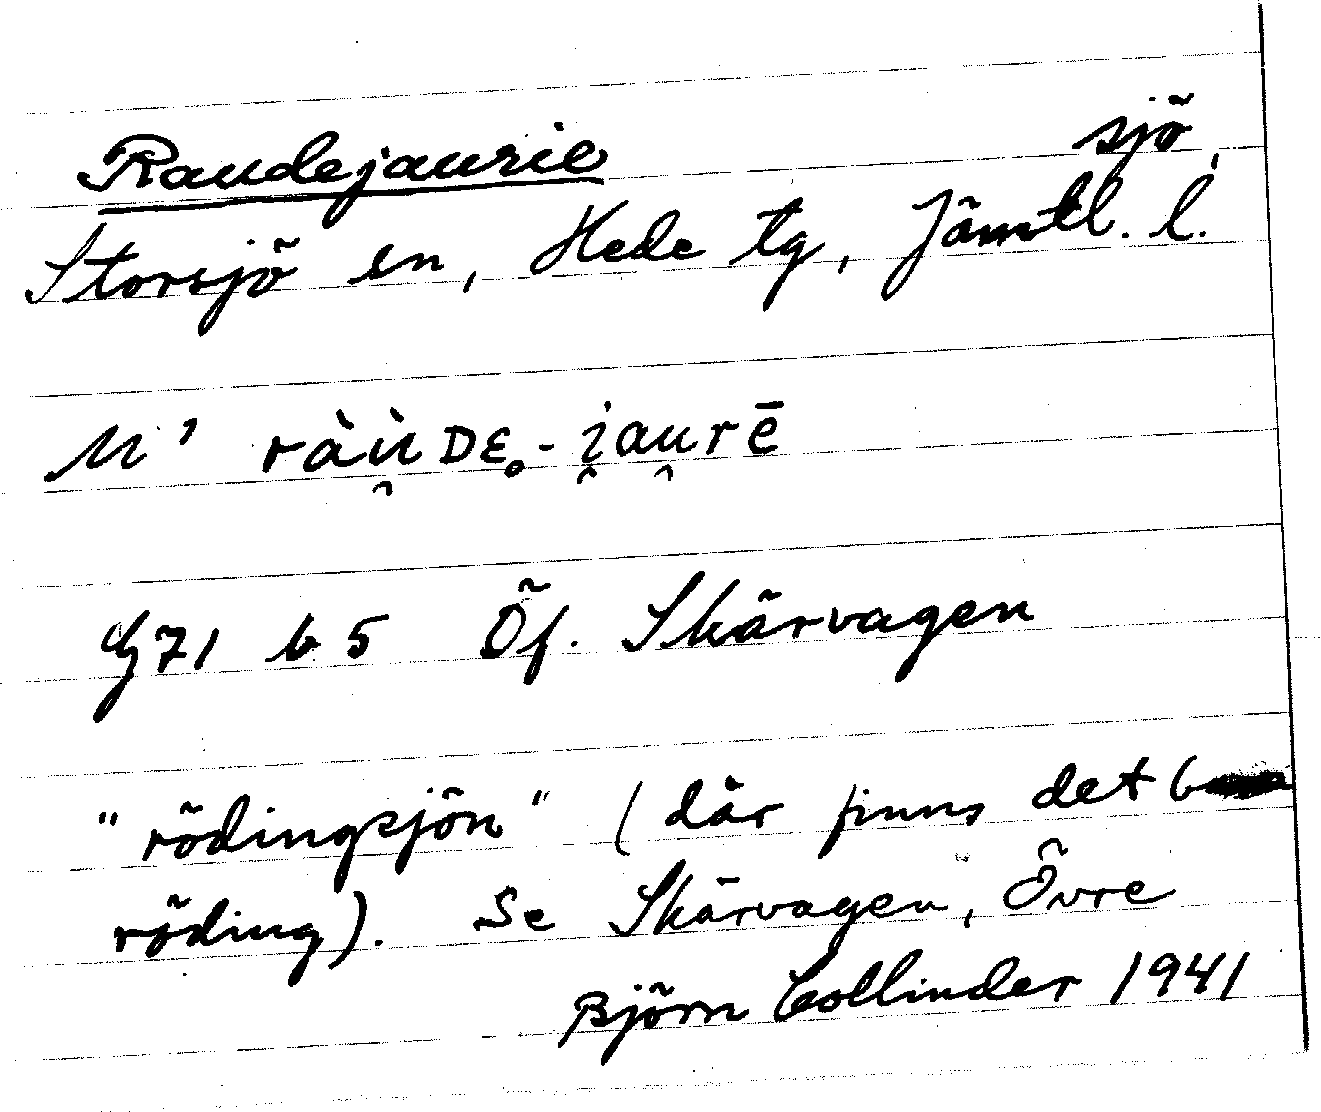 Raudejaurie sjö,
Storsjö sn, Hede tg, Jämtl. l.
M' ràù̯ᴅɛ˳-i̯au̯rē
G71 b 5 Öf. Skärvagen
"rödingsjön" (där finns det
röding). Se Skärvagen, Övre
Björn Collinder 1941